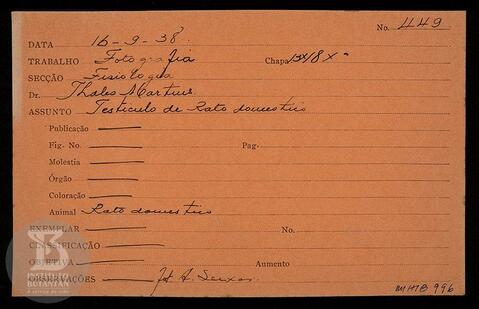 No. 449
DATA 16-9-38.
TRABALHO Fotografia Chapa 13X18X
SECÇÃO Fisiologia
Dr. Thales Martins.
ASSUNTO Testiculo de Rato domestico
Publicação
Fig. No. Pag.
Molestia
Órgão
Coloração
Animal Rato domestico
EXEMPLAR No.
CLASSIFICAÇÃO
OBJETIVA Aumento
OBSERVAÇÕES Fot. A. Seixas.
INSTITUTO BUTANTAN
A serviço da vida
MHIB 996